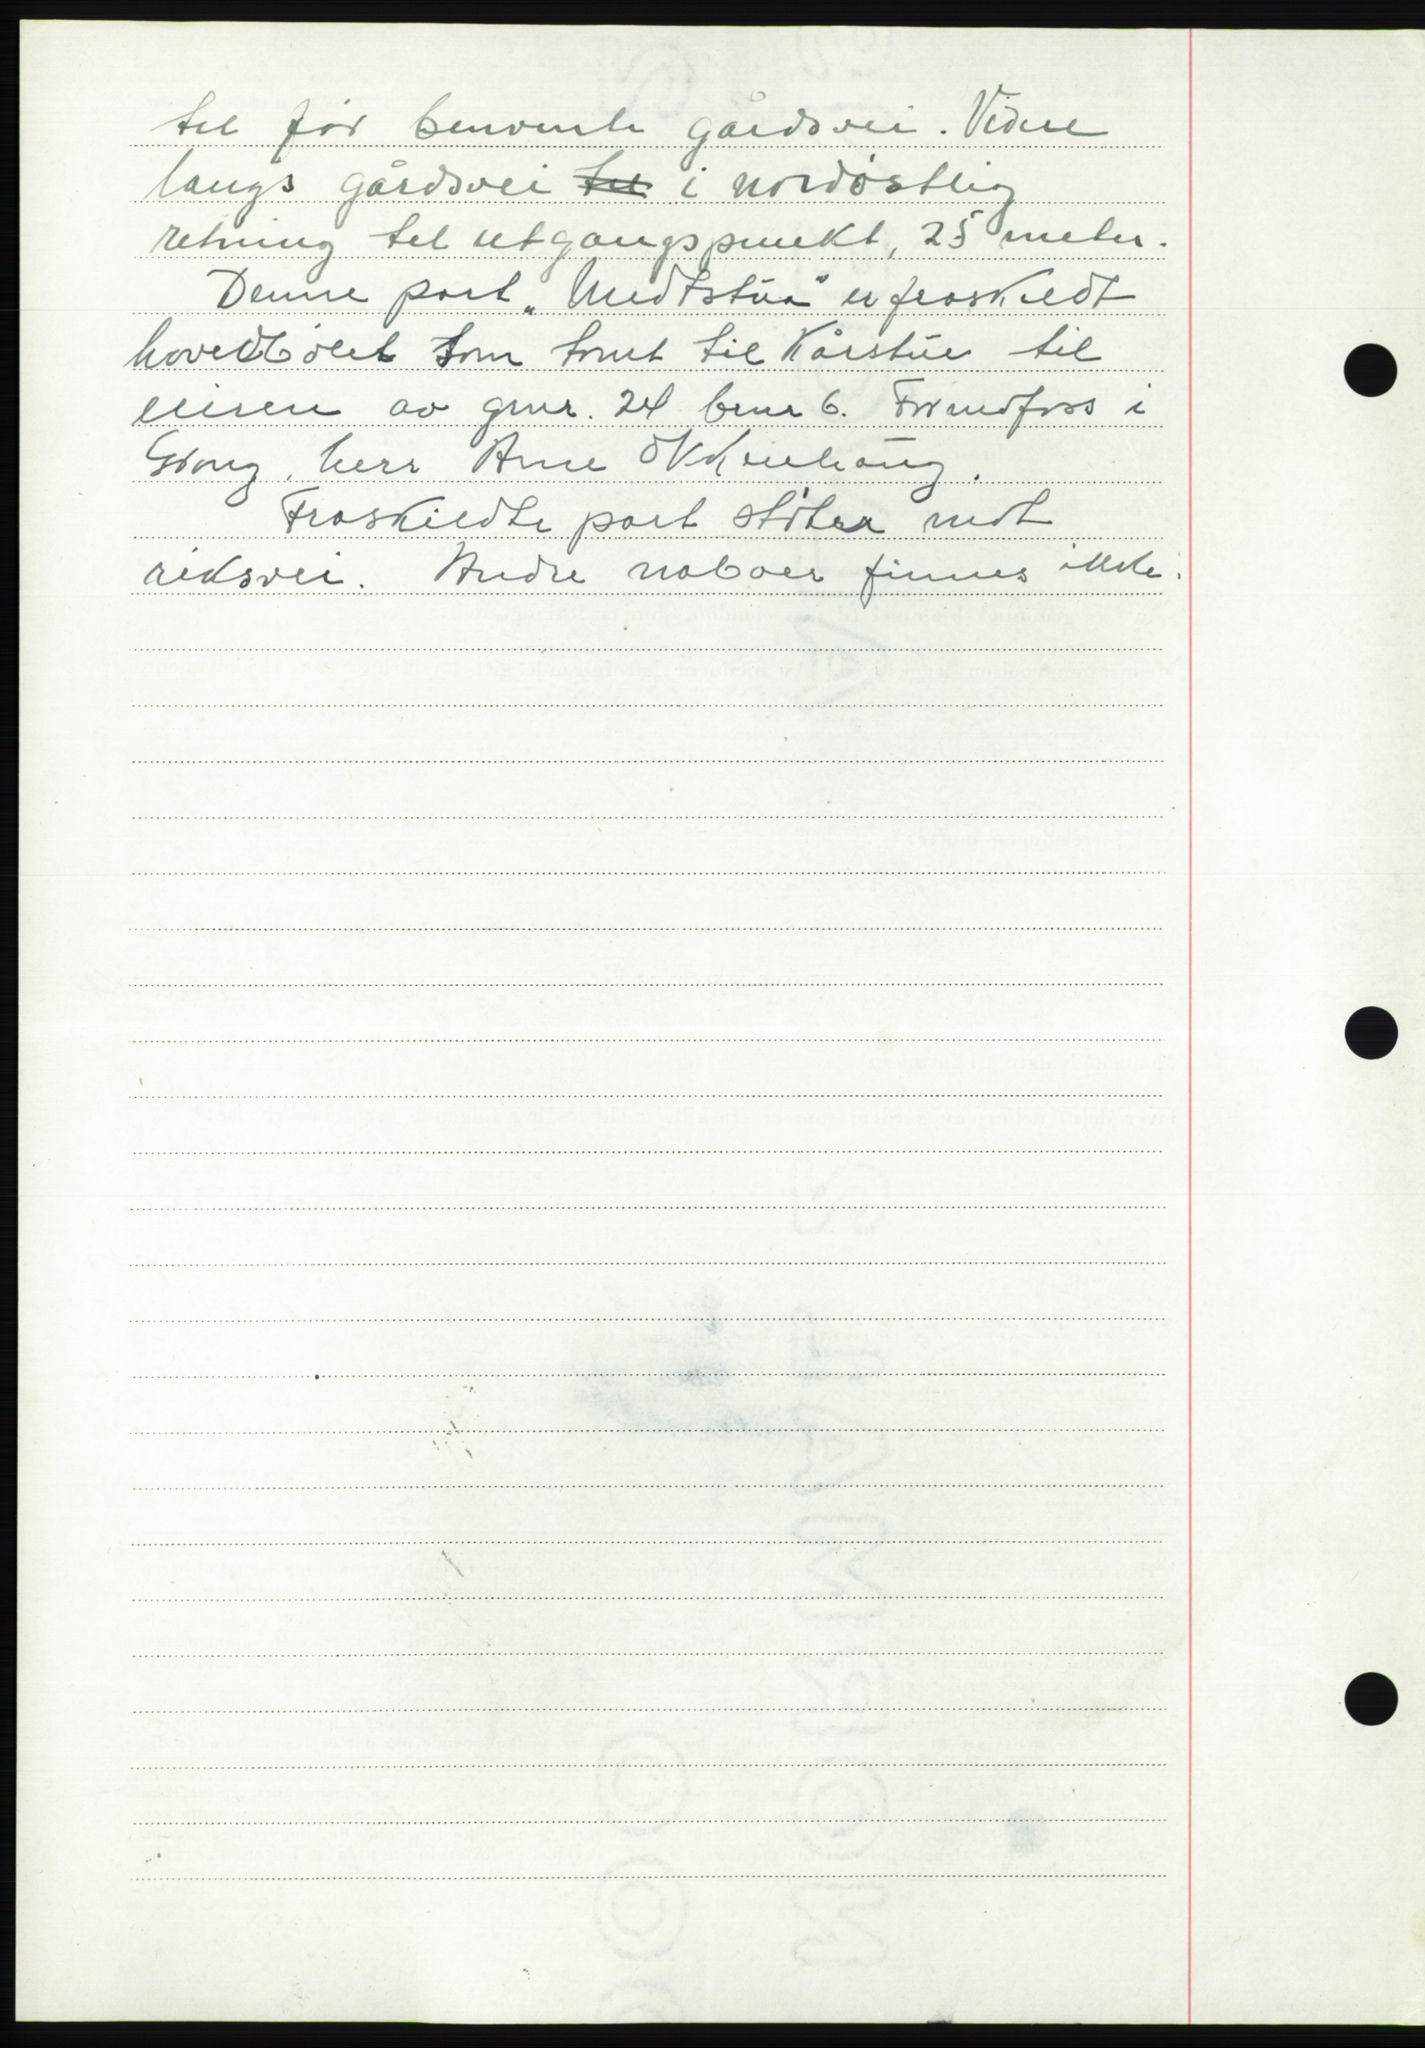 til før benevnte gårdsvei. Videre
langs gårdsvei til i nordøstlig
retning til utgangspunkt, 25 meter.
Denne part „Midtstua" er fraskildt
hovedbølet som tomt til Kårstue til
eieren av gnr. 24 bnr 6. Formofoss i
Grong, herr Arne
Fraskildte part støter mot
riksvei. Andre naboer finnes ikke.